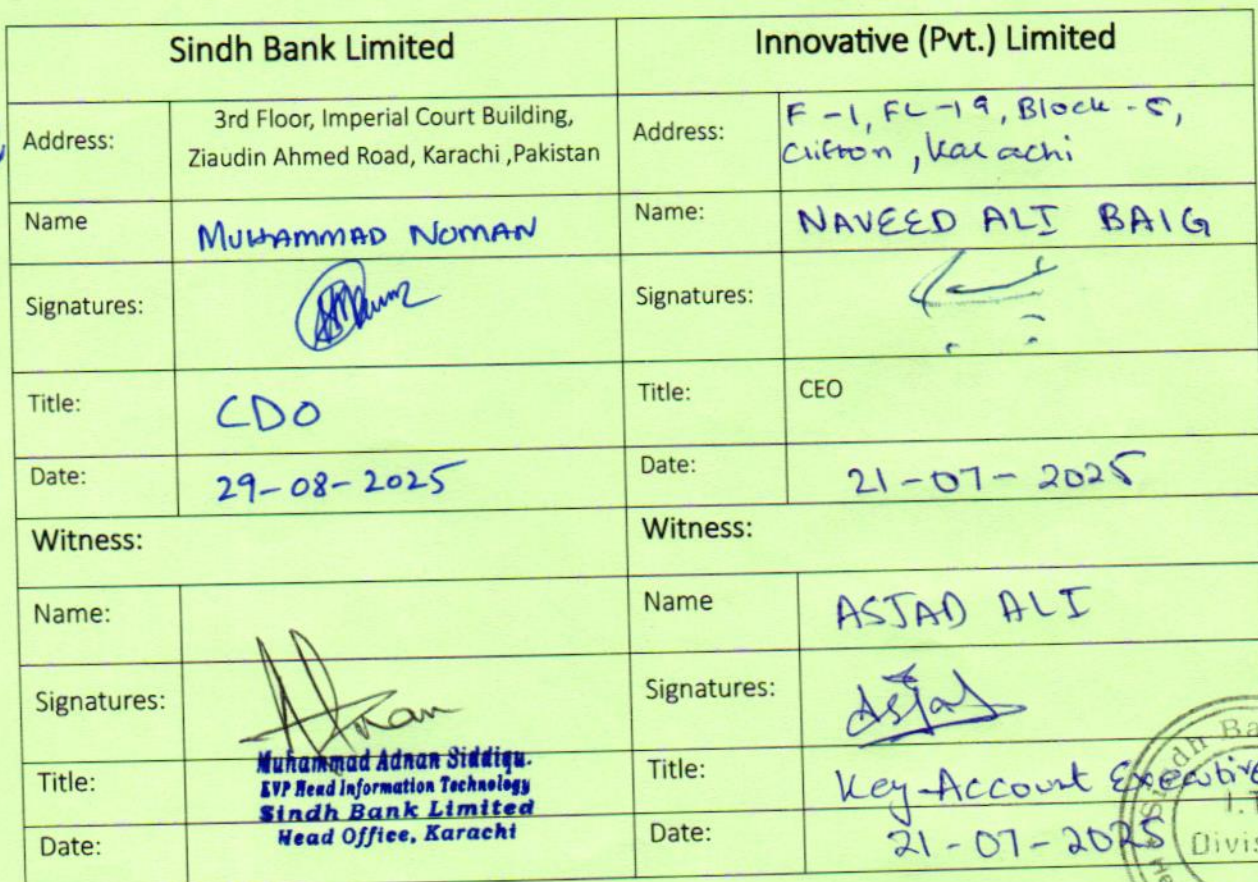 Sindh Bank Limited
Innovative (Pvt.) Limited
Address:
3rd Floor, Imperial Court Building,
Ziaudin Ahmed Road, Karachi ,Pakistan
Address:
F-1, FL-19, Block-5,
Clifton, Karachi
Name
MUHAMMAD NOMAN
Name:
NAVEED ALI BAIG
Signatures:
Signatures:
Title:
CDO
Title:
CEO
Date:
29-08-2025
Date:
21-07-2025
Witness:
Witness:
Name:
Name
ASJAD ALI
Signatures:
Signatures:
Asjad
Title:
Muhammad Adnan Siddiqu.
EVP Head Information Technology
Sindh Bank Limited
Head Office, Karachi
Title:
Key-Account Executive
Date:
Date:
21-07-2025
Sindh Ba
I.T
Divis